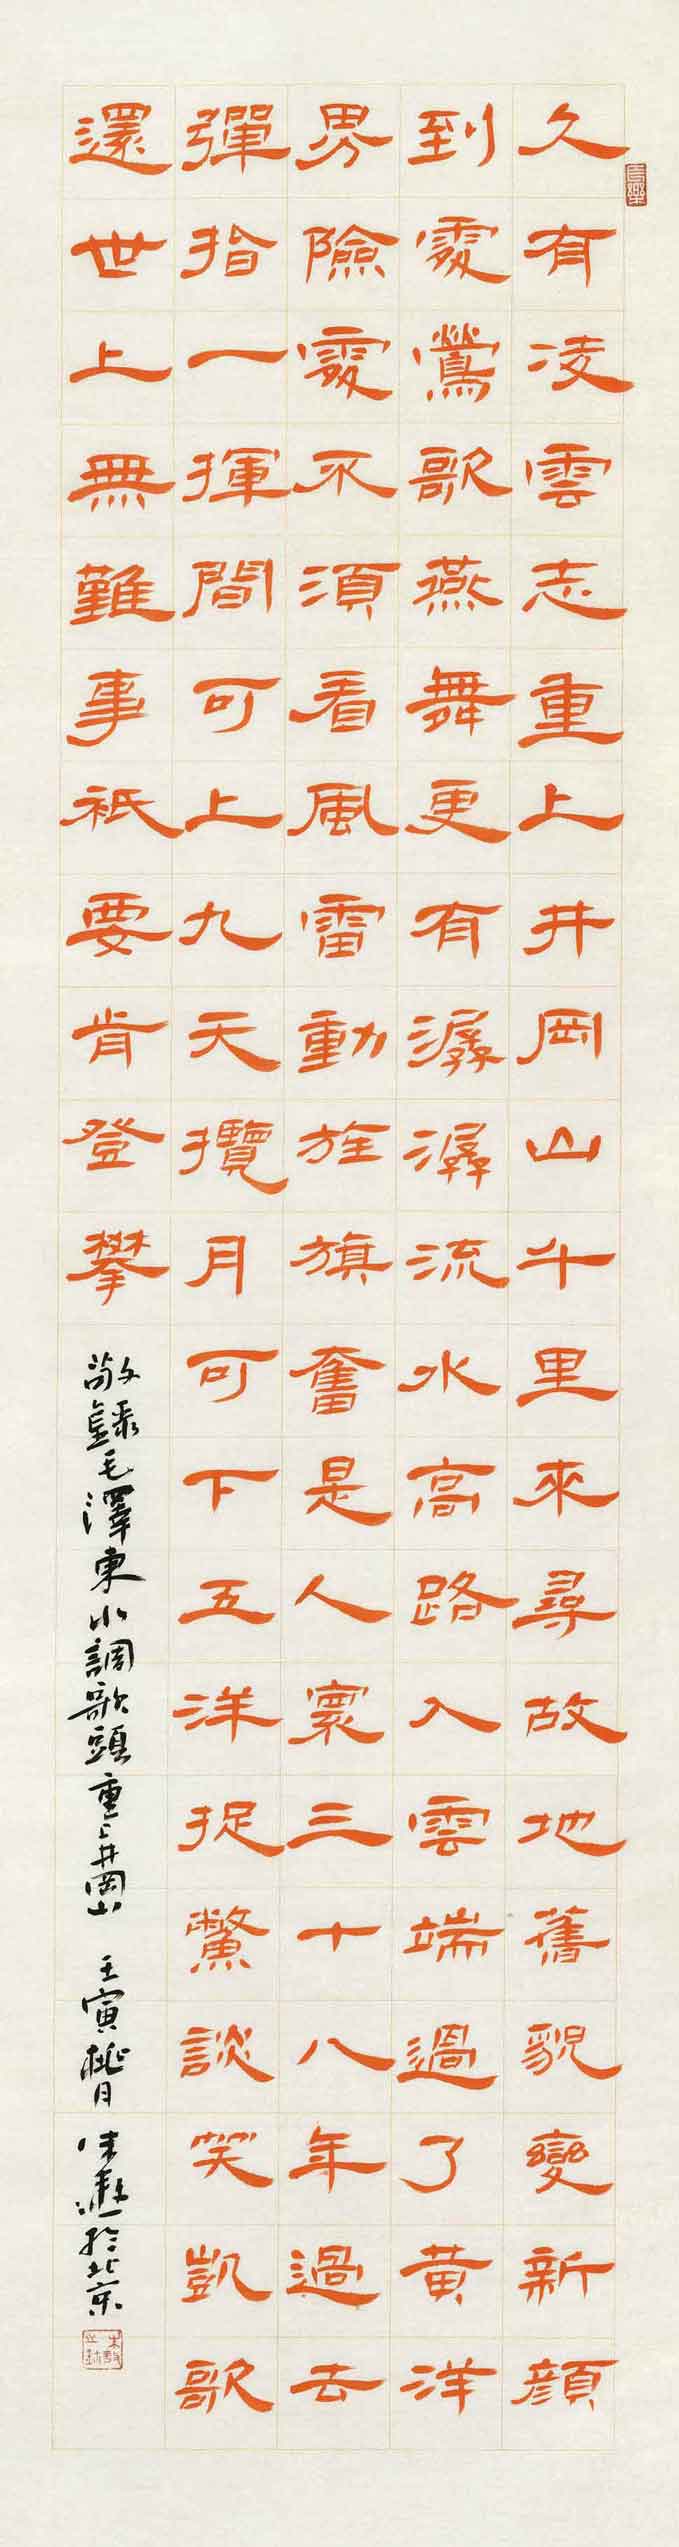 久有凌雲志重上井岡山千里來尋故地舊貌變新顏
到處鶯歌燕舞更有潺潺流水高路入雲端過了黃洋
界險處不須看風雷動旌旗奮是人寰三十八年過去
彈指一揮間可上九天攬月可下五洋捉鱉談笑凱歌
還世上無難事衹要肯登攀
敬錄毛澤東水調歌頭重上井岡山 壬寅桃月 於北京